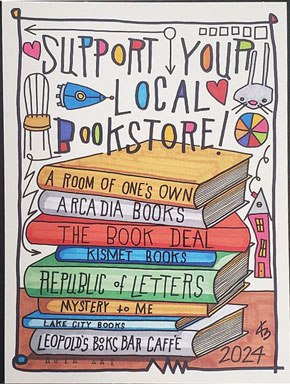 SUPPORT YOUR
LOCAL
BOOKSTORE!
A ROOM OF ONE'S OWN
ARCADIA BOOKS
THE BOOK DEAL
KISMET BOOKS
REPUBLIC of LETTERS
MYSTERY to ME
LAKE CITY BOOKS
LEOPOLD'S BOOKS BAR CAFFÈ
2024